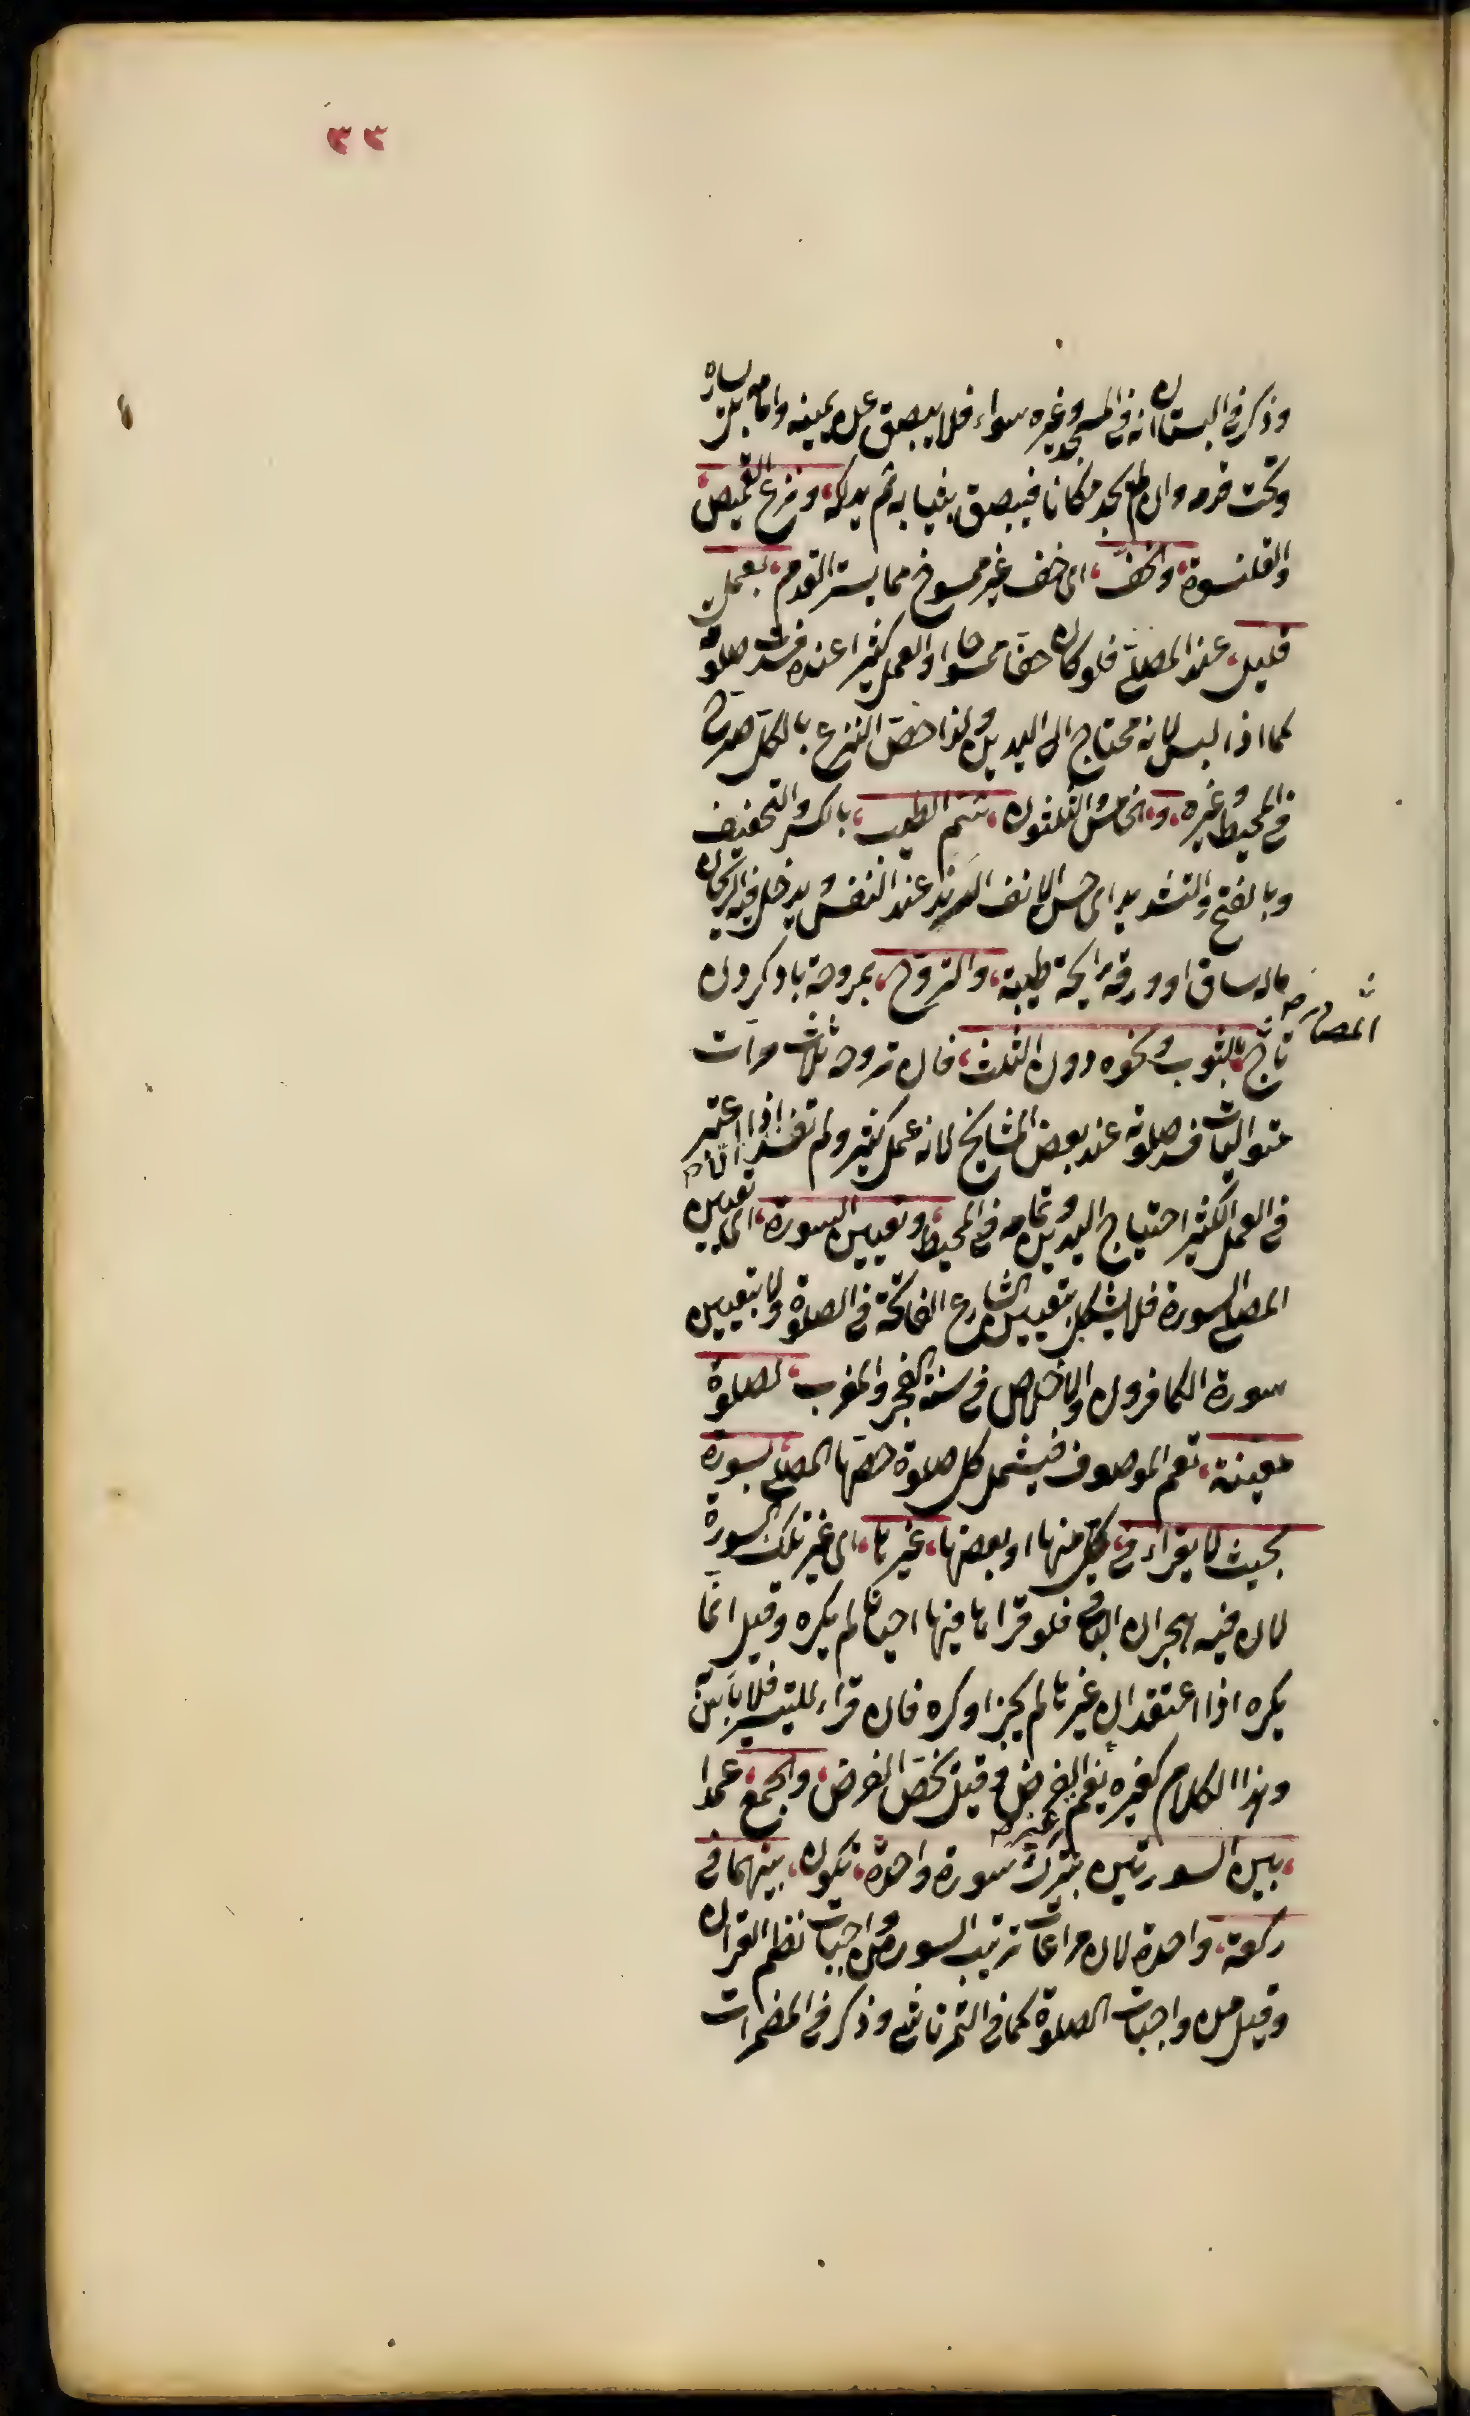 ٣٣
وذكر في البستان انه في المسجد وغيره سواء فلا يبصق على يمينه وامامه بل يساره
وتحت قدمه وان لم يجد مكانا فيبصق بثيابه ثم يدلكه، ونزع القميص،
والقلنسوة، والخف، اى خف غير ممسوح مما يستر القدم، بعمل
قليل، عند المصلى فلو كان خفا ممسوحا او العمل كثيرا عنده فسدت صلوته
كما اذا لبس لانه محتاج الى اليدين ولذا خص النزع بالكل صرح
في المحيط وغيره، و، الخامس والثلثون، شم الطيب، بالكسر والتخفيف
وبالفتح والتشديد اى حس الانف عند النفس ويدخل فيه الريحان
ماله ساق او ورقه رايحة طيبة، والتروح، بمروحة باد كردن
المصادر صح
تاج، بالثوب ونحوه دون الثلث، فان تروح ثلاث مرات
متواليات فسد صلوته عند بعض المشايخ لانه عمل كثير ولم تفسد اذا اعتبر
في العمل الكثير احتياج اليدين وتمامه في المحيط، وتعيين السورة، اى تعيين
المصلى السورة فلا يشكل بتعيين الشارع الفاتحة في الصلوة ولا بتعيين
سورة الكافرون والاخلاص في سنة الفجر والمغرب، لصلوة
معينة، تعم الموصوف فيشمل كل صلوة خصها المصلى بسورة
بحيث لا يقراء في، كل منها او بعضها، غيرها، اى غير تلك السورة
لان فيه هجران الباقى فلو قراها فيها احيانا لم يكره وقيل انما
يكره اذا اعتقد ان غيرها لم يجز او كره فان قراء للتيسر فلا باس
وهذا الكلام كغيره يعم الفرض وغيره صح وقيل يخص الفرض، والجمع، عمدا
، بين السورتين بترك سورة واحدة، تكون، بينهما في
ركعة، واحدة لان مراعات ترتيب السور من واجبات نظم القران
وقيل من واجبات الصلوة كما في التمرتاشى وذكر في المضمرات